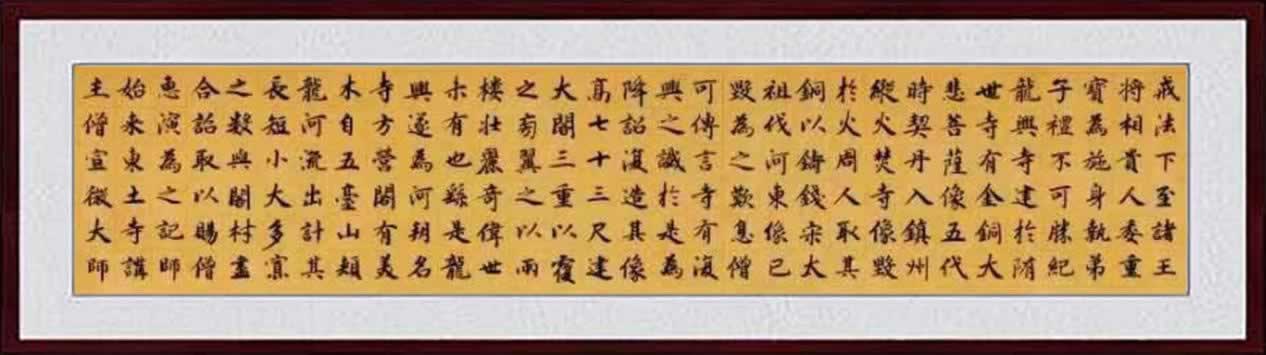 戒法下至諸王
將相貴人委重
寶為施身執弟
子禮不可勝紀
龍興寺建於隋
世寺有金銅大
悲菩薩像五代
時契丹入鎮州
縱火焚寺像毀
於火周人取其
銅以鑄錢宋太
祖伐河東像已
毀為之歎息僧
可傳言寺有復
興之讖於是為
降詔復造其像
高七十三尺建
大閣三重以覆
之旁翼之以兩
樓壯麗奇偉世
未有也繇是龍
興遂為河朔名
寺方營閣有美
木自五臺山頰
龍河流出計其
長短小大多寡
之數與閣材盡
合詔取以賜僧
惠演為之記師
始來東土寺講
主僧宣微大師